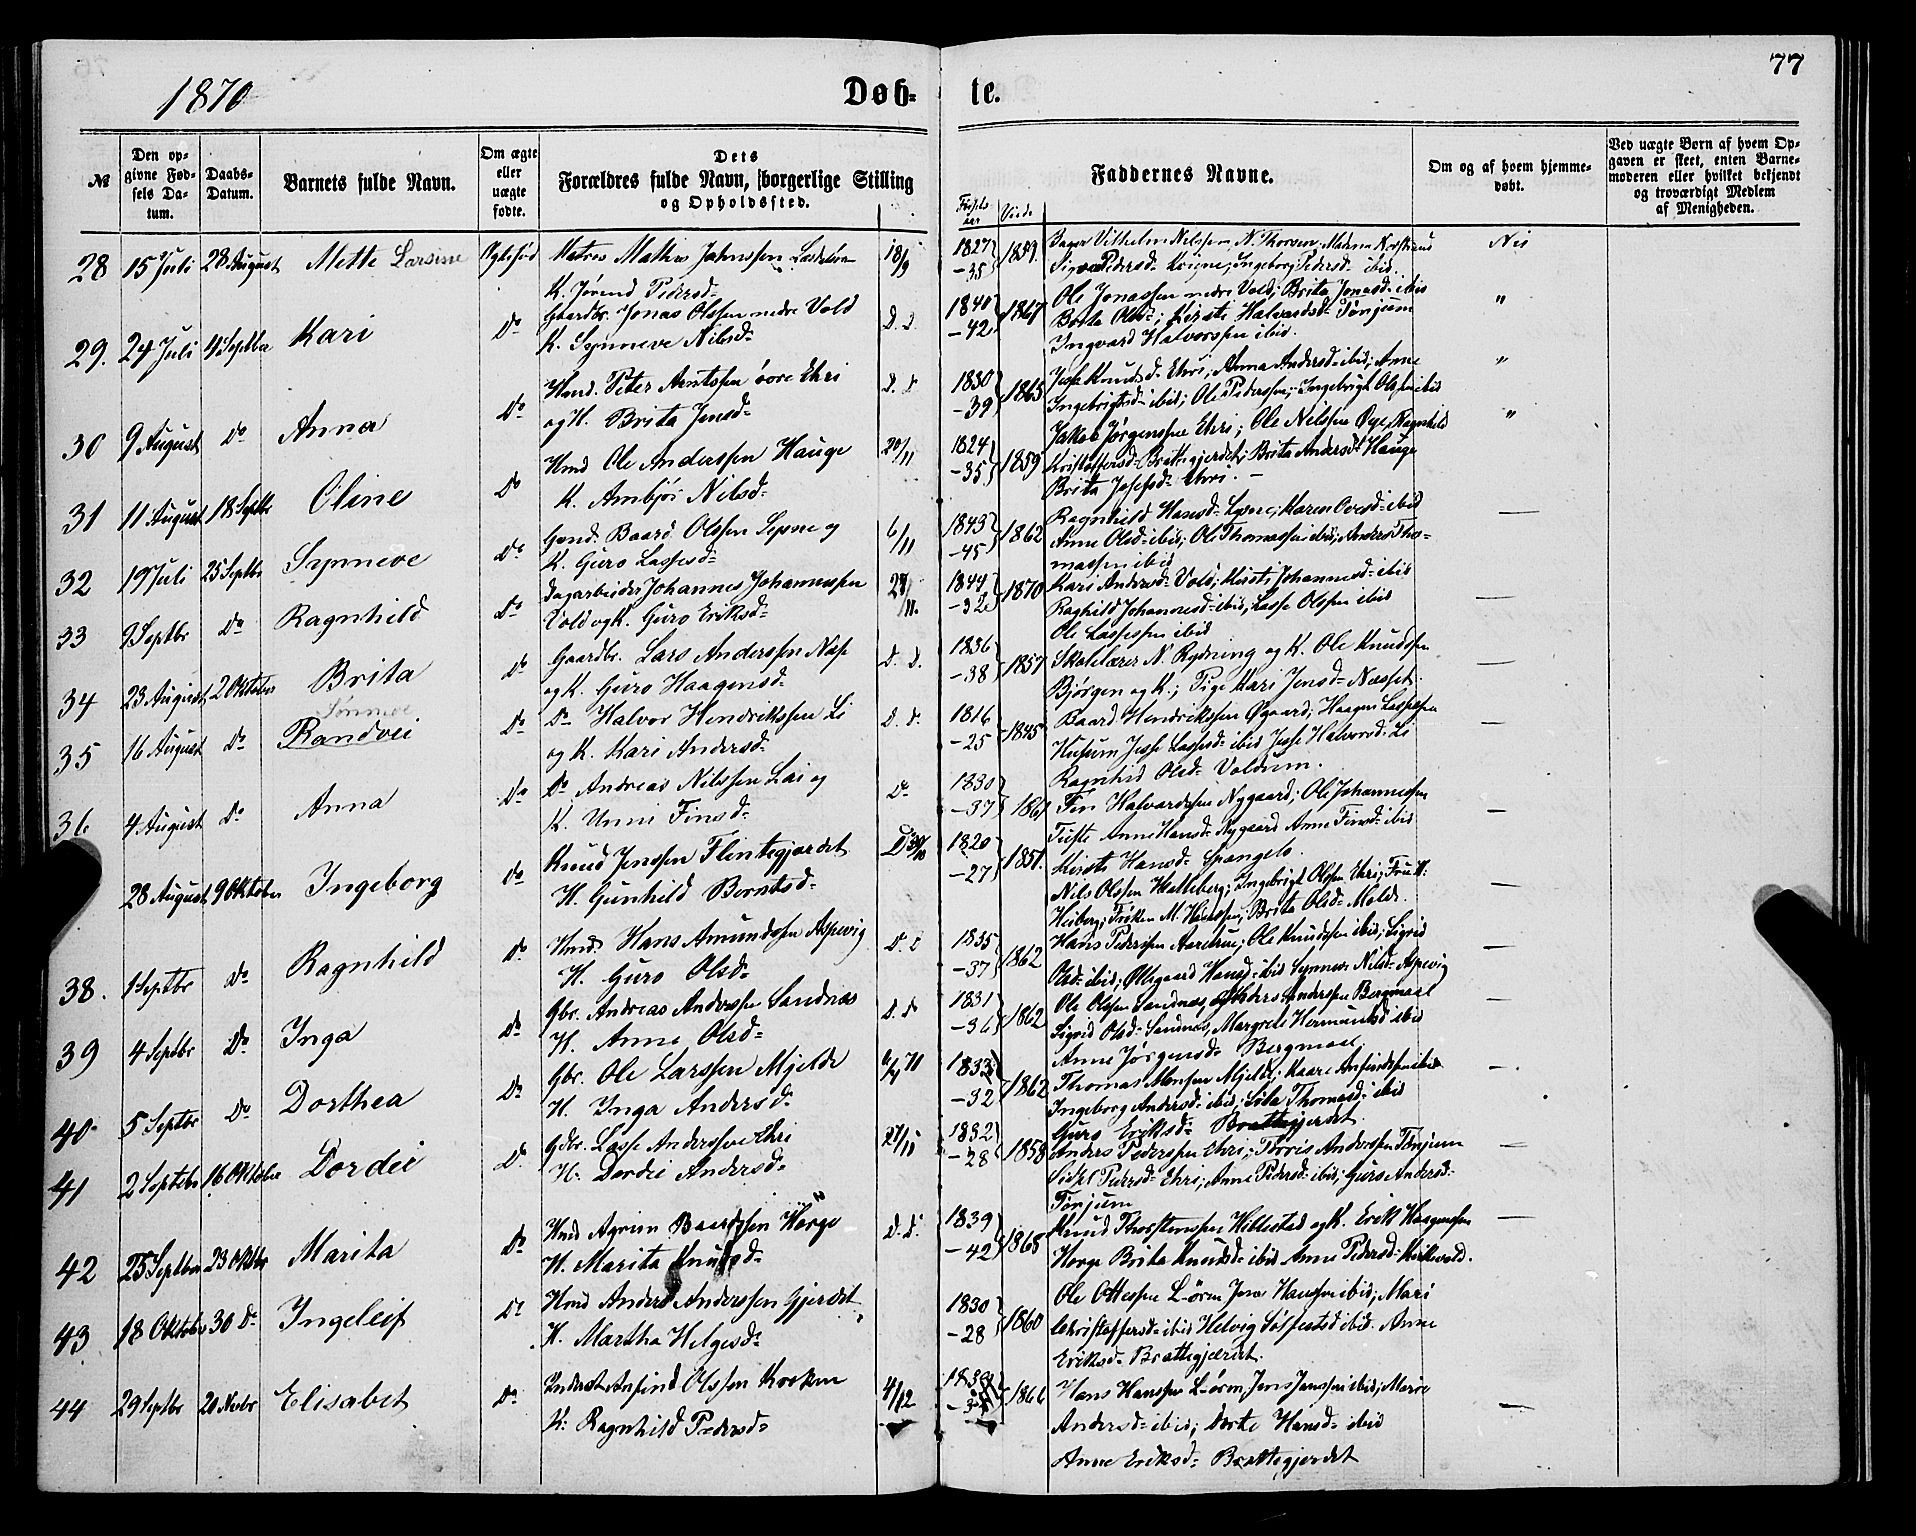 77
1870
Døb- te.
№
Den opgivne Fødsels Datum.
Daabs-Datum.
Barnets fulde Navn.
Om ægte eller uægte fødte.
Dets Forældres fulde Navn, borgerlige Stilling og Opholdssted.
Faddernes Navne.
Om og af hvem hjemmedøbt.
Ved uægte Børn af hvem Opgaven er skeet, enten Barnemoderen eller hvilket bekjendt og troværdigt Medlem af Menigheden.
28 15 Juli 28 August Mette Larsine Ægtefød
K. Jørend Pedersd= 18/9 1827 -35 1859. Nei
29. 24 Juli 4 Septber Kari Do Gaardbr. Jonas Olssen nedre Vold
K. Synneve Nilsd= D. D. 1840 -42 1867 "
Ole Jonassen nedre Vold; Brita Jonasd= ibid
Brita Olsd=; Kirsti Halvardsd= Tønjum
Ingvard Halvorssen ibid.
30 9 August Do Anna Do Huusd. Peter Arntssen øvre Ehri
og H. Brita Jensd= D. D 1830 -39 1865 "
Jesse Knudsd= Ehri; Anna Andersd= ibid; Anne
Ingebrigtsd= ibid; Ole Pederssen; Ingebrigt Olssen ibid
31 11 August 18 Septbr Oline Do Hmd Ole Anderssen Hauge
K. Ambjør Nilsd= 20/11 1824 -35 1859 "
Jakob Jørgenssen Ehri; Ole Nilssen Øye, Ragnhild
Kristoffersd= Brattegjerdet; Brita Andersd= Hauge
Brita Josefsd= Ehri. -
32 19 Juli 25 Septbr Synneve Do Gmd. Baard Olssen Lysne og
K. Guro Lassesd= 6/11 1843 -45 1862 —
Ragnhild Hansd= Lysne; Karen Ovesd= ibid
Anne Olsd= ibid; Ole Thomassen ibid; Anders Tho=
massen ibid
33 9 Septbr Do Ragnhild Do Dagarbeider Johannes Johannessen
Vold og K. Guro Eriksd= 28/11. 1844 -32 1870 —
Kari Andersd= Vold; Kirsti Johannesd= ibid
Raghild Johannesd= ibid; Lasse Olssen ibid
Ole Lassessen ibid
34 23 August 2 Oktober Brita Do Gaardbr. Lars Anderssen Næse
og K. Guro Haagensd= D. D. 1836 -38 1857 —
Skolelærer N. Rydning og K. Ole Knudssen
Bjørgen og K.; Pige Kari Jensd= Næsset.
35 16 August Do Synneve
Randvei Do Do Halvor Hendrikssen Li
og K. Kari Andersd= D. D. 1816 -25 1845 —
Baard Hendrikssen Øgaard; Haagen Lassessen
Husum Jesse Lassesd= ibid Jesse Halvorsd= Li
Ragnhild Olsd= Voldum.
36 4 August Do Anna Do Do Andreas Nilssen Lai og
K. Unni Finsd= Do 1830 -37 1861 —
Fin Halvardssen Nygaard; Ole Johannessen
Tufte Anne Hansd= Nygaard Anne Finsd= ibid
Kirsti Hansd= Spangelo.
28 August 9 Oktober Ingeborg Do Knud Jenssen Flintegjerdet
H. Gunhild Berntsd= 1820 -27 1851. —
Nils Olssen Hatleberg; Ingebrigt Olssen Ehri;
Heiberg; Frøken M. Hanssen; Brita Olsd= Melde.
38. 1 Septbr Do Ragnhild Do Hmd. Hans Amundssen Aspevig
H. Guro Olsd= D. D 1835 -37 1862 —
Hans Pederssen Aaretun; Ole Knudssen ibid; Sigrid
Olsd= ibid; Øllegaard Hansd= ibid Synneve Nilsd= Aspevig
39 4 Septbr Do Inga Do Gbr. Andreas Anderssen Sandnæs
H. Anne Olsd= D. D 1831 -36 1862 —
Ole Olssen Sandnæs, Anderssen Bergmaal
Sigrid Olsd= Sandnæs, Margrete Hermundsd ibid
Anne Jørgensd= Bergmaal
40 5 Septbr Do Dorthea Do Gbr. Ole Larssen Mjelde
H. Inga Andersd= 1833 -32 1862 —
Thomas Monsen Mjelde; Kaare Anfindssen ibid
Ingeborg Andersd= ibid; Sila Thomasd= ibid
Guro Eriksd= Brattegjerdet
41 2 Septebr 16 Oktober Dordei D. Gdbr. Lasse Anderssen Ehri
H. Dordei Andersd= 27/11 1832 -28 1858 —
Anders Pederssen Ehri; Thoris Anderssen Tønjum
Sidsel Pedersd= Ehri; Anne Pedersd= ibid; Guro Andersd=
Tønjum
42 25 Septber 23 Oktbr Marita Do Hmd Agrim Baardssen Horge
H. Marita Knudsd= D. D. 1839 -42 1865 —
Knud Thorstenssen Hillestad og K. Erik Haagenssen
Horge Brita Knudsd= ibid Anne Pedersd= Kirkevold.
43 18 Oktober 30 Do Ingeleif Do Hmd Anders Anderssen Gjerdet
H. Martha Helgesd= 1830 -28 1860
Ole Ottessen L-øren Jens Hanssen ibid; Mari
Christoffersd= ibid Helvig Sølfestsd ibid. Anne
Eriksd= Brattegjerdet.
44 29 Septbr 20 Novbr Elisabet Do Inderst Anfind Olssen Kroken
K: Ragnhild Pedersd= 4/12 1839 1866 —
Hans Hanssen L-øren, Jens Jenssen ibid; Marie
Andersd= ibid; Dorte Hansd= ibid
Anne Eriksd= Brattegjerdet